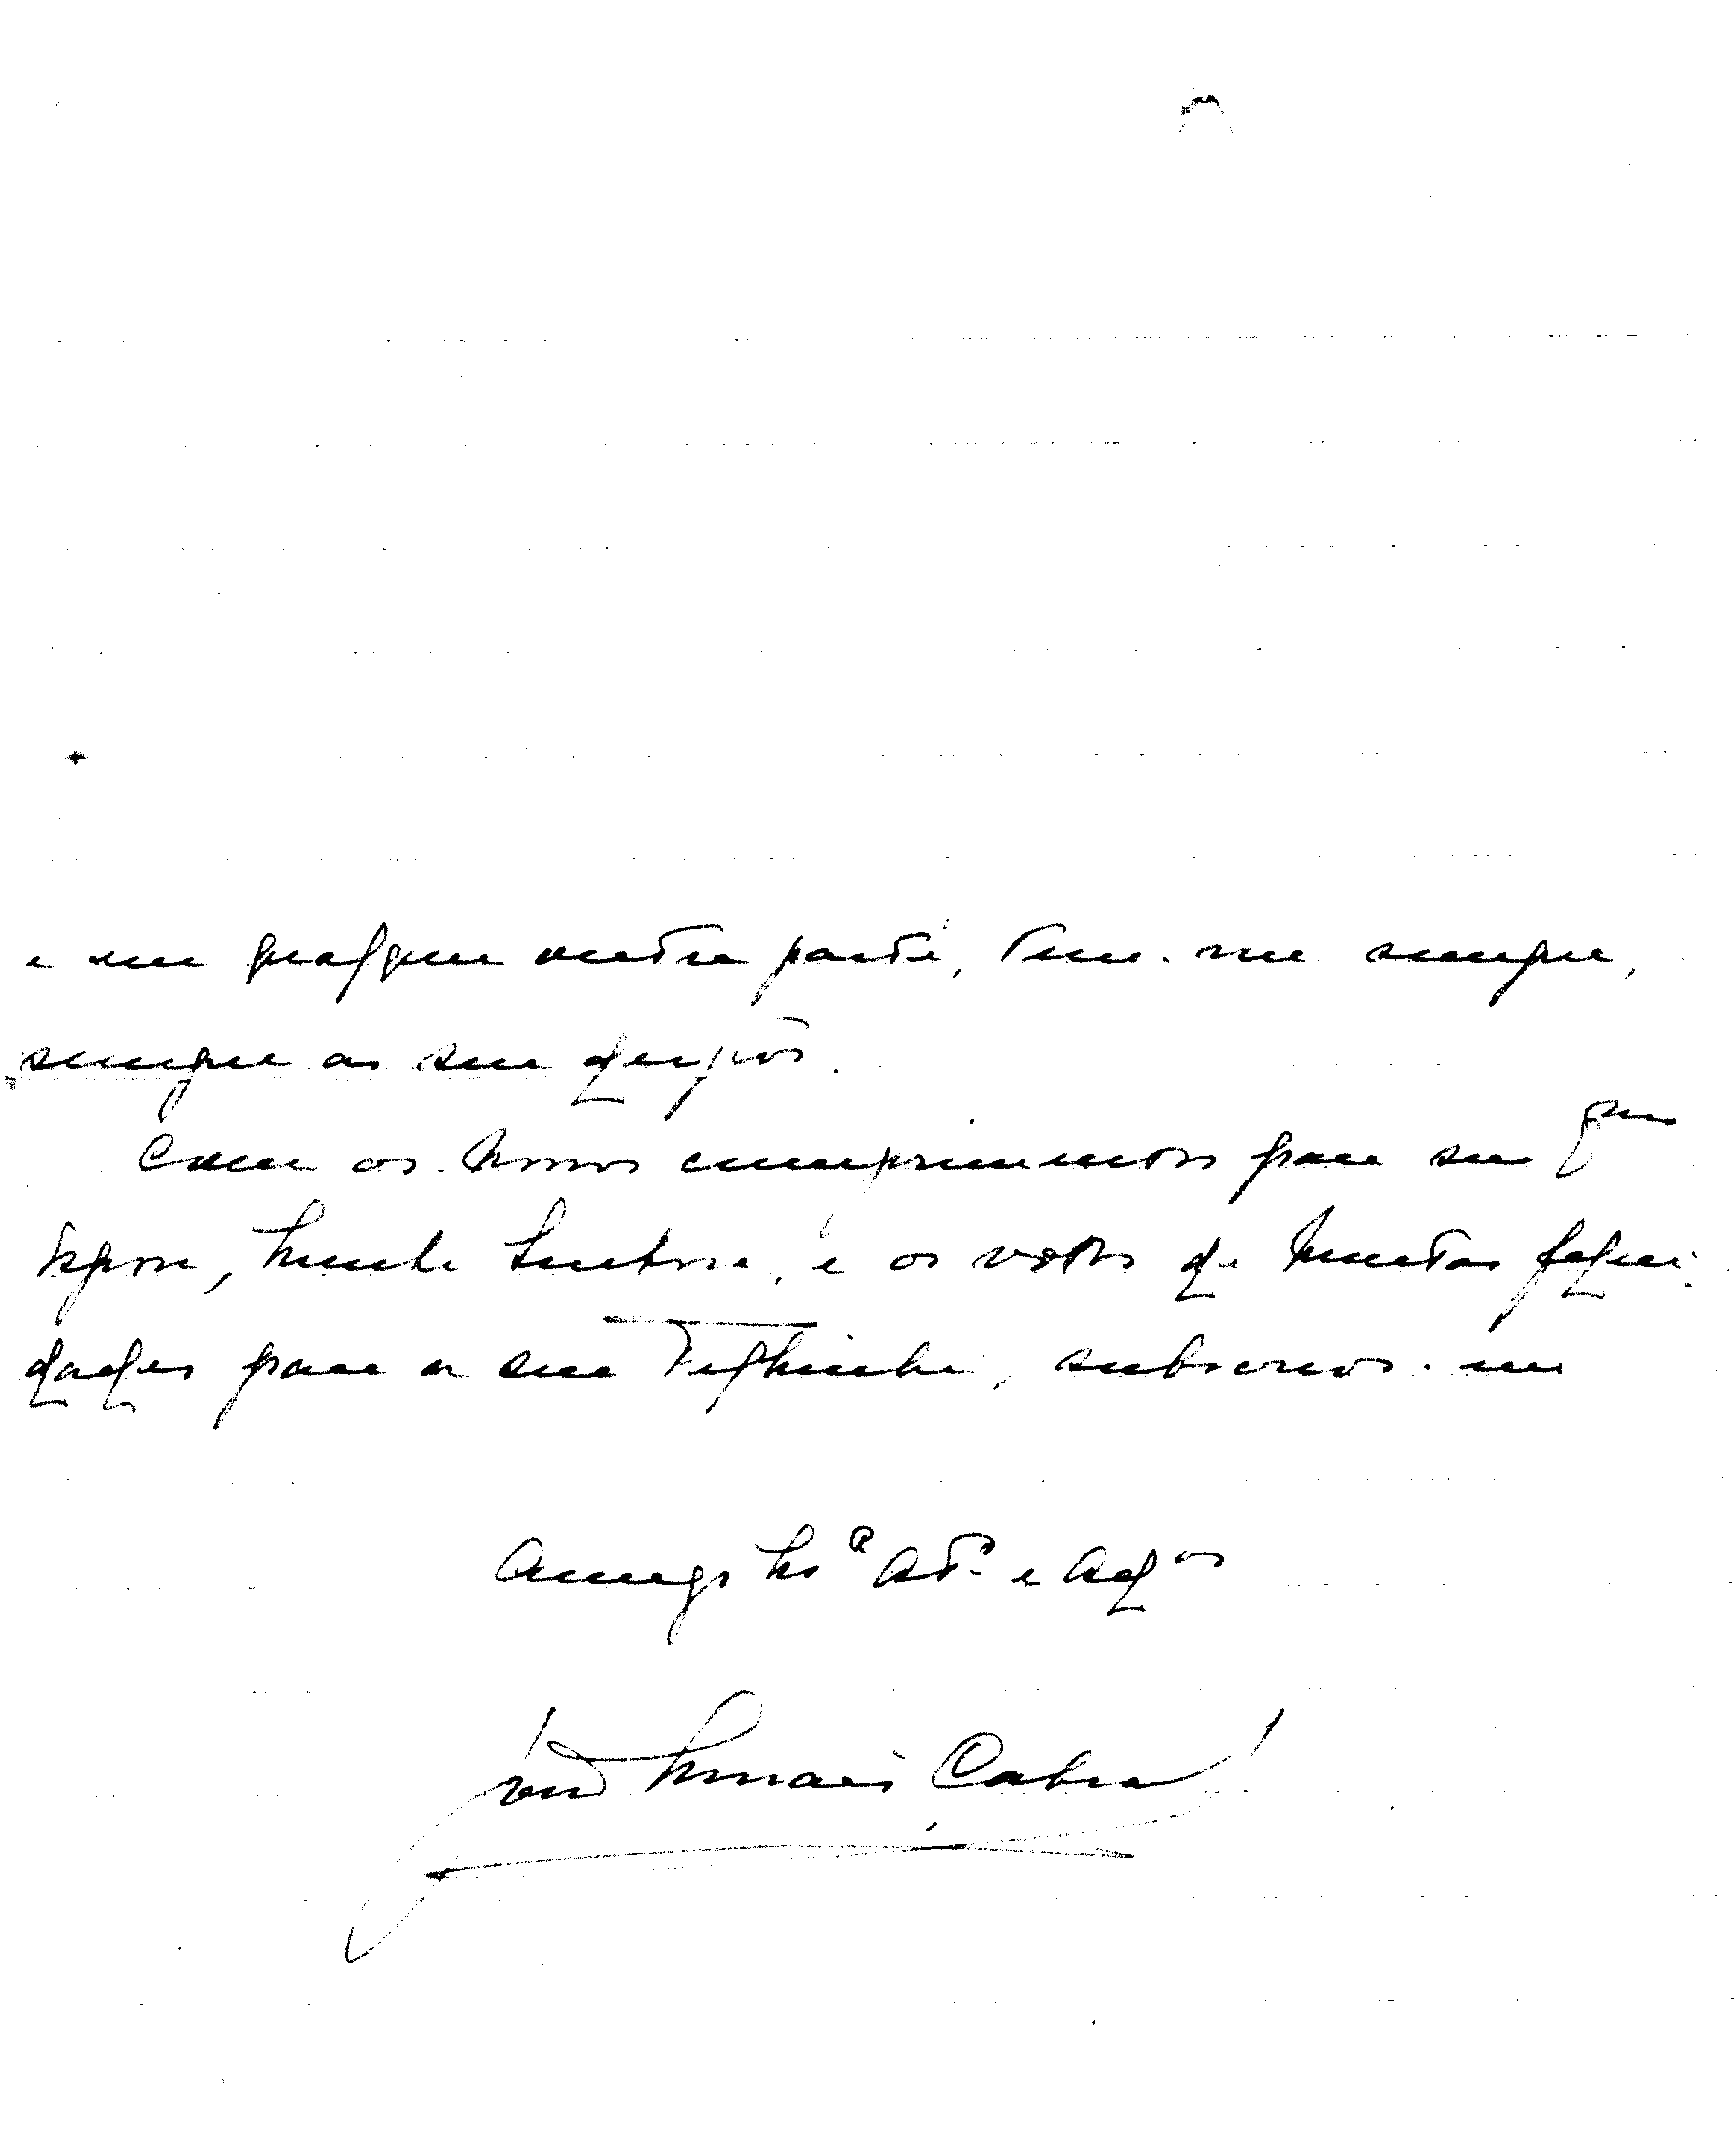 e em qualquer outra parte, tem-me sempre,
sempre ao seu dispôr.
Com os nossos cumprimentos para sua Exma
Esposa, minha Senhora, e os votos de muitas felici-
dades para a sua Filhinha, subscrevo-me
Amigo Mto Atº e Adºr
José Morais Cabral